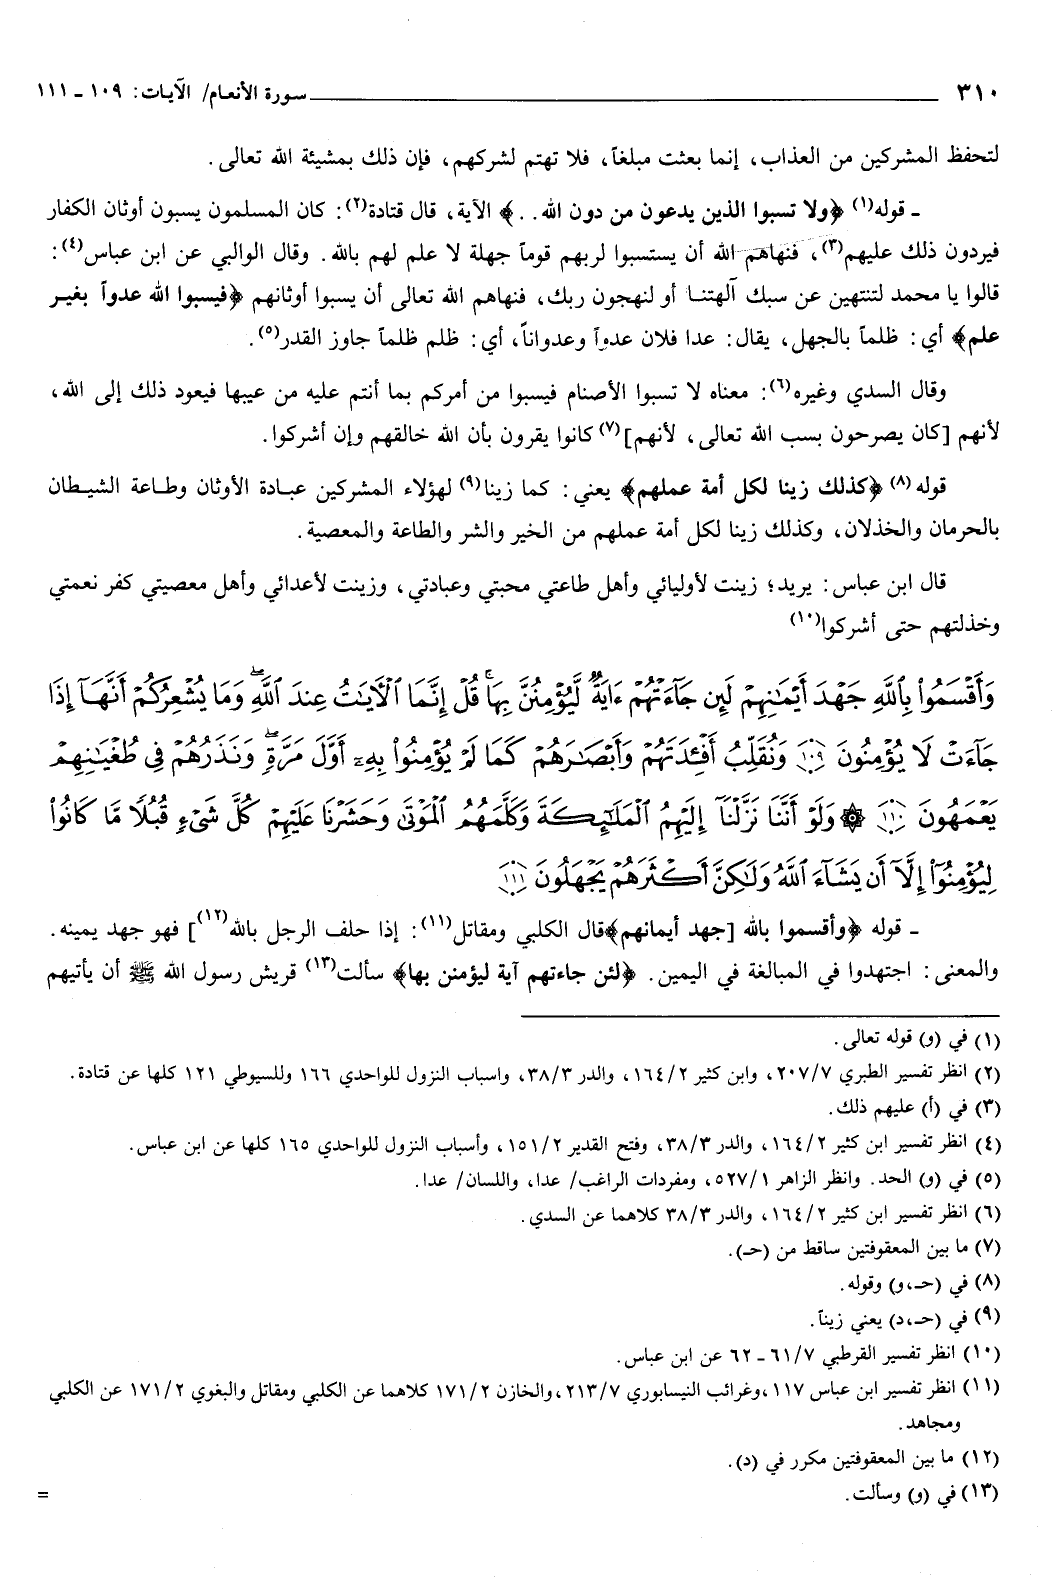 ٣١٠ سورة الأنعام/ الآيات: ١٠٩ ـ ١١١
لتحفظ المشركين من العذاب، إنما بعثت مبلغاً، فلا تهتم لشركهم، فإن ذلك بمشيئة الله تعالى.
ـ قوله(١) ﴿ولا تسبوا الذين يدعون من دون الله. .﴾ الآية، قال قتادة(٢): كان المسلمون يسبون أوثان الكفار
فيردون ذلك عليهم(٣)، فنهاهم الله أن يستسبوا لربهم قوماً جهلة لا علم لهم بالله. وقال الوالبي عن ابن عباس(٤):
قالوا يا محمد لتنتهين عن سبك آلهتنا أو لنهجون ربك، فنهاهم الله تعالى أن يسبوا أوثانهم ﴿فيسبوا الله عدواً بغير
علم﴾ أي: ظلماً بالجهل، يقال: عدا فلان عدواً وعدواناً، أي: ظلم ظلماً جاوز القدر(٥).
وقال السدي وغيره(٦): معناه لا تسبوا الأصنام فيسبوا من أمركم بما أنتم عليه من عيبها فيعود ذلك إلى الله،
لأنهم [كان يصرحون بسب الله تعالى، لأنهم](٧) كانوا يقرون بأن الله خالقهم وإن أشركوا.
قوله(٨) ﴿كذلك زينا لكل أمة عملهم﴾ يعني: كما زينا(٩) لهؤلاء المشركين عبادة الأوثان وطاعة الشيطان
بالحرمان والخذلان، وكذلك زينا لكل أمة عملهم من الخير والشر والطاعة والمعصية.
قال ابن عباس: يريد؛ زينت لأوليائي وأهل طاعتي محبتي وعبادتي، وزينت لأعدائي وأهل معصيتي كفر نعمتي
وخذلتهم حتى أشركوا(١٠)
وَأَقْسَمُوا۟ بِٱللَّهِ جَهْدَ أَيْمَـٰنِهِمْ لَئِن جَآءَتْهُمْ ءَايَةٌ لَّيُؤْمِنُنَّ بِهَا ۚ قُلْ إِنَّمَا ٱلْـَٔايَـٰتُ عِندَ ٱللَّهِ ۖ وَمَا يُشْعِرُكُمْ أَنَّهَآ إِذَا
جَآءَتْ لَا يُؤْمِنُونَ ١٠٩ وَنُقَلِّبُ أَفْـِٔدَتَهُمْ وَأَبْصَـٰرَهُمْ كَمَا لَمْ يُؤْمِنُوا۟ بِهِۦٓ أَوَّلَ مَرَّةٍ ۖ وَنَذَرُهُمْ فِى طُغْيَـٰنِهِمْ
يَعْمَهُونَ ١١٠ ۞ وَلَوْ أَنَّنَا نَزَّلْنَآ إِلَيْهِمُ ٱلْمَلَـٰٓئِكَةَ وَكَلَّمَهُمُ ٱلْمَوْتَىٰ وَحَشَرْنَا عَلَيْهِمْ كُلَّ شَىْءٍ قُبُلًا مَّا كَانُوا۟
لِيُؤْمِنُوٓا۟ إِلَّآ أَن يَشَآءَ ٱللَّهُ وَلَـٰكِنَّ أَكْثَرَهُمْ يَجْهَلُونَ ١١١
ـ قوله ﴿وأقسموا بالله [جهد أيمانهم﴾قال الكلبي ومقاتل(١١): إذا حلف الرجل بالله(١٢)] فهو جهد يمينه.
والمعنى: اجتهدوا في المبالغة في اليمين. ﴿لئن جاءتهم آية ليؤمنن بها﴾ سألت(١٣) قريش رسول الله ﷺ أن يأتيهم
(١) في (و) قوله تعالى.
(٢) انظر تفسير الطبري ٢٠٧/٧، وابن كثير ١٦٤/٢، والدر ٣٨/٣، واسباب النزول للواحدي ١٦٦ وللسيوطي ١٢١ كلها عن قتادة.
(٣) في (أ) عليهم ذلك.
(٤) انظر تفسير ابن كثير ١٦٤/٢، والدر ٣٨/٣، وفتح القدير ١٥١/٢، وأسباب النزول للواحدي ١٦٥ كلها عن ابن عباس.
(٥) في (و) الحد. وانظر الزاهر ٥٢٧/١، ومفردات الراغب/ عدا، واللسان/ عدا.
(٦) انظر تفسير ابن كثير ١٦٤/٢، والدر ٣٨/٣ كلاهما عن السدي.
(٧) ما بين المعقوفتين ساقط من (حـ).
(٨) في (حـ،و) وقوله.
(٩) في (حـ،د) يعني زيناً.
(١٠) انظر تفسير القرطبي ٦١/٧ ـ ٦٢ عن ابن عباس.
(١١) انظر تفسير ابن عباس ١١٧،وغرائب النيسابوري ٢١٣/٧،والخازن ١٧١/٢ كلاهما عن الكلبي ومقاتل والبغوي ١٧١/٢ عن الكلبي
ومجاهد.
(١٢) ما بين المعقوفتين مكرر في (د).
(١٣) في (و) وسألت. =